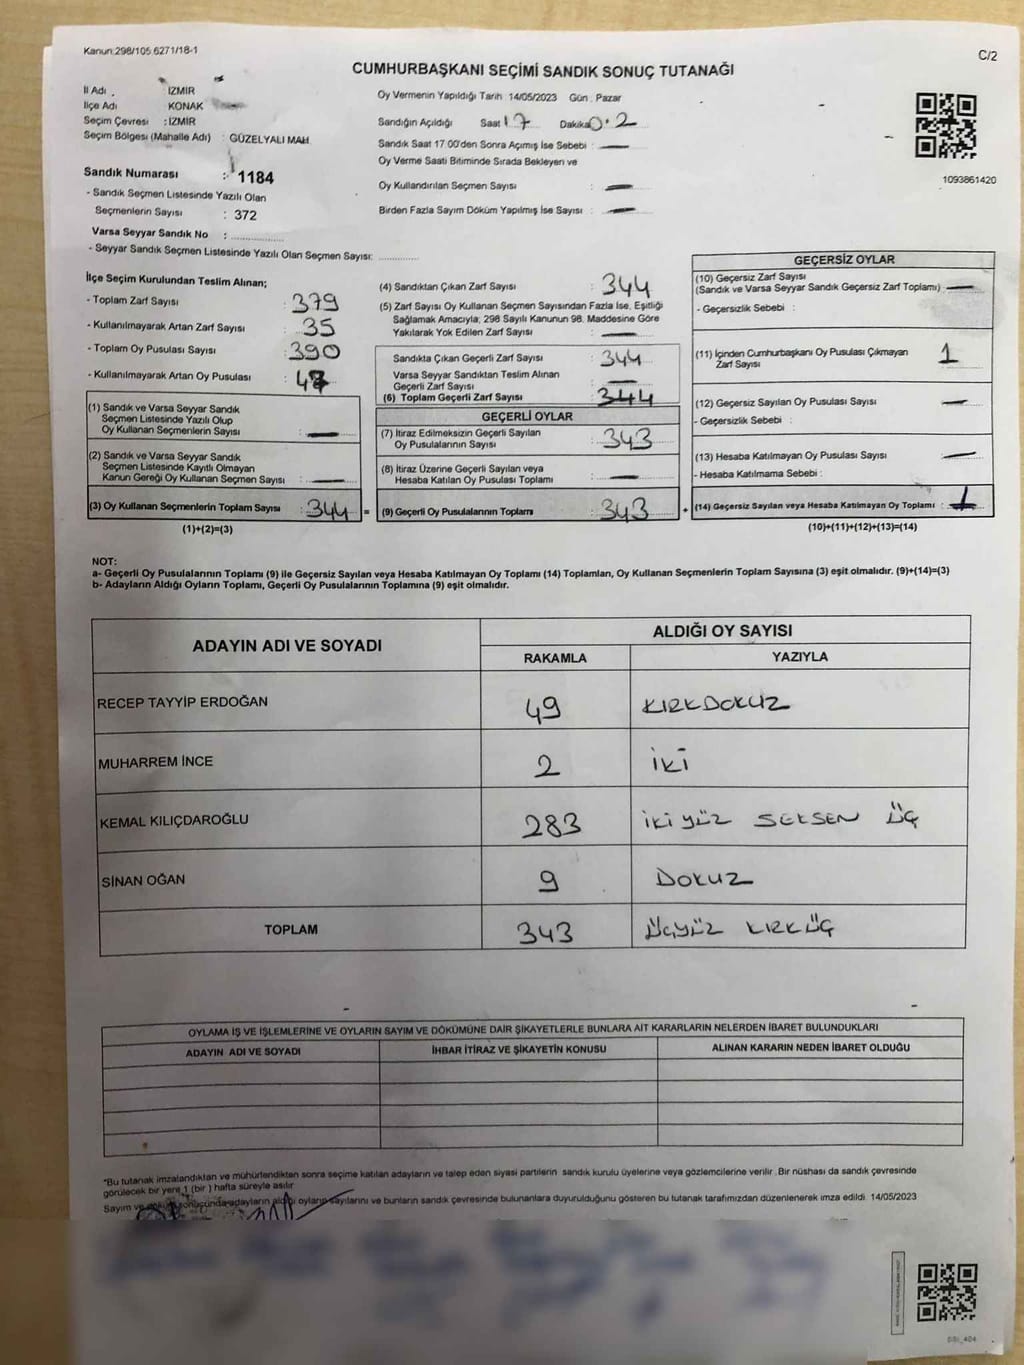 Kanun:298/105 6271/18-1
C/2
CUMHURBAŞKANI SEÇİMİ SANDIK SONUÇ TUTANAĞI
İl Adı : İZMİR
İlçe Adı KONAK
Seçim Çevresi : İZMİR
Seçim Bölgesi (Mahalle Adı) : GÜZELYALI MAH.
Sandık Numarası : 1184
- Sandık Seçmen Listesinde Yazılı Olan
Seçmenlerin Sayısı : 372
Varsa Seyyar Sandık No :
- Seyyar Sandık Seçmen Listesinde Yazılı Olan Seçmen Sayısı:
Oy Vermenin Yapıldığı Tarih 14/05/2023 Gün : Pazar
Sandığın Açıldığı Saat 17 Dakika 0.2
Sandık Saat 17.00'den Sonra Açımış İse Sebebi : —
Oy Verme Saati Bitiminde Sırada Bekleyen ve
Oy Kullandırılan Seçmen Sayısı : —
Birden Fazla Sayım Döküm Yapılmış İse Sayısı : —
1093861420
İlçe Seçim Kurulundan Teslim Alınan;
- Toplam Zarf Sayısı : 379
- Kullanılmayarak Artan Zarf Sayısı : 35
- Toplam Oy Pusulası Sayısı : 390
- Kullanılmayarak Artan Oy Pusulası : 47
(1) Sandık ve Varsa Seyyar Sandık
Seçmen Listesinde Yazılı Olup
Oy Kullanan Seçmenlerin Sayısı : —
(2) Sandık ve Varsa Seyyar Sandık
Seçmen Listesinde Kayıtlı Olmayan
Kanun Gereği Oy Kullanan Seçmen Sayısı : —
(3) Oy Kullanan Seçmenlerin Toplam Sayısı : 344 =
(1)+(2)=(3)
(4) Sandıktan Çıkan Zarf Sayısı : 344
(5) Zarf Sayısı Oy Kullanan Seçmen Sayısından Fazla İse, Eşitliği
Sağlamak Amacıyla; 298 Sayılı Kanunun 98. Maddesine Göre
Yakılarak Yok Edilen Zarf Sayısı : —
Sandıkta Çıkan Geçerli Zarf Sayısı : 344
Varsa Seyyar Sandıktan Teslim Alınan
Geçerli Zarf Sayısı : —
(6) Toplam Geçerli Zarf Sayısı : 344
GEÇERLİ OYLAR
(7) İtiraz Edilmeksizin Geçerli Sayılan
Oy Pusulalarının Sayısı : 343
(8) İtiraz Üzerine Geçerli Sayılan veya
Hesaba Katılan Oy Pusulası Toplamı : —
(9) Geçerli Oy Pusulalarının Toplamı : 343 +
GEÇERSİZ OYLAR
(10) Geçersiz Zarf Sayısı
(Sandık ve Varsa Seyyar Sandık Geçersiz Zarf Toplamı) : —
- Geçersizlik Sebebi :
(11) İçinden Cumhurbaşkanı Oy Pusulası Çıkmayan
Zarf Sayısı : 1
(12) Geçersiz Sayılan Oy Pusulası Sayısı : —
- Geçersizlik Sebebi :
(13) Hesaba Katılmayan Oy Pusulası Sayısı : —
- Hesaba Katılmama Sebebi :
(14) Geçersiz Sayılan veya Hesaba Katılmayan Oy Toplamı : 1
(10)+(11)+(12)+(13)=(14)
NOT:
a- Geçerli Oy Pusulalarının Toplamı (9) ile Geçersiz Sayılan veya Hesaba Katılmayan Oy Toplamı (14) Toplamları, Oy Kullanan Seçmenlerin Toplam Sayısına (3) eşit olmalıdır. (9)+(14)=(3)
b- Adayların Aldığı Oyların Toplamı, Geçerli Oy Pusulalarının Toplamına (9) eşit olmalıdır.
ADAYIN ADI VE SOYADI
ALDIĞI OY SAYISI
RAKAMLA YAZIYLA
RECEP TAYYİP ERDOĞAN 49 KIRKDOKUZ
MUHARREM İNCE 2 İKİ
KEMAL KILIÇDAROĞLU 283 İKİ YÜZ SEKSEN ÜÇ
SİNAN OĞAN 9 DOKUZ
TOPLAM 343 ÜÇYÜZ KIRKÜÇ
OYLAMA İŞ VE İŞLEMLERİNE VE OYLARIN SAYIM VE DÖKÜMÜNE DAİR ŞİKAYETLERLE BUNLARA AİT KARARLARIN NELERDEN İBARET BULUNDUKLARI
ADAYIN ADI VE SOYADI İHBAR İTİRAZ VE ŞİKAYETİN KONUSU ALINAN KARARIN NEDEN İBARET OLDUĞU
"Bu tutanak imzalandıktan ve mühürlendikten sonra seçime katılan adayların ve talep eden siyasi partilerin sandık kurulu üyelerine veya gözlemcilerine verilir. Bir nüshası da sandık çevresinde
görülecek bir yere 1 (bir) hafta süreyle asılır
Sayım ve sonucunda adayların aldığı oyların sayılarını ve bunların sandık çevresinde bulunanlara duyurulduğunu gösteren bu tutanak tarafımızdan düzenlenerek imza edildi 14/05/2023